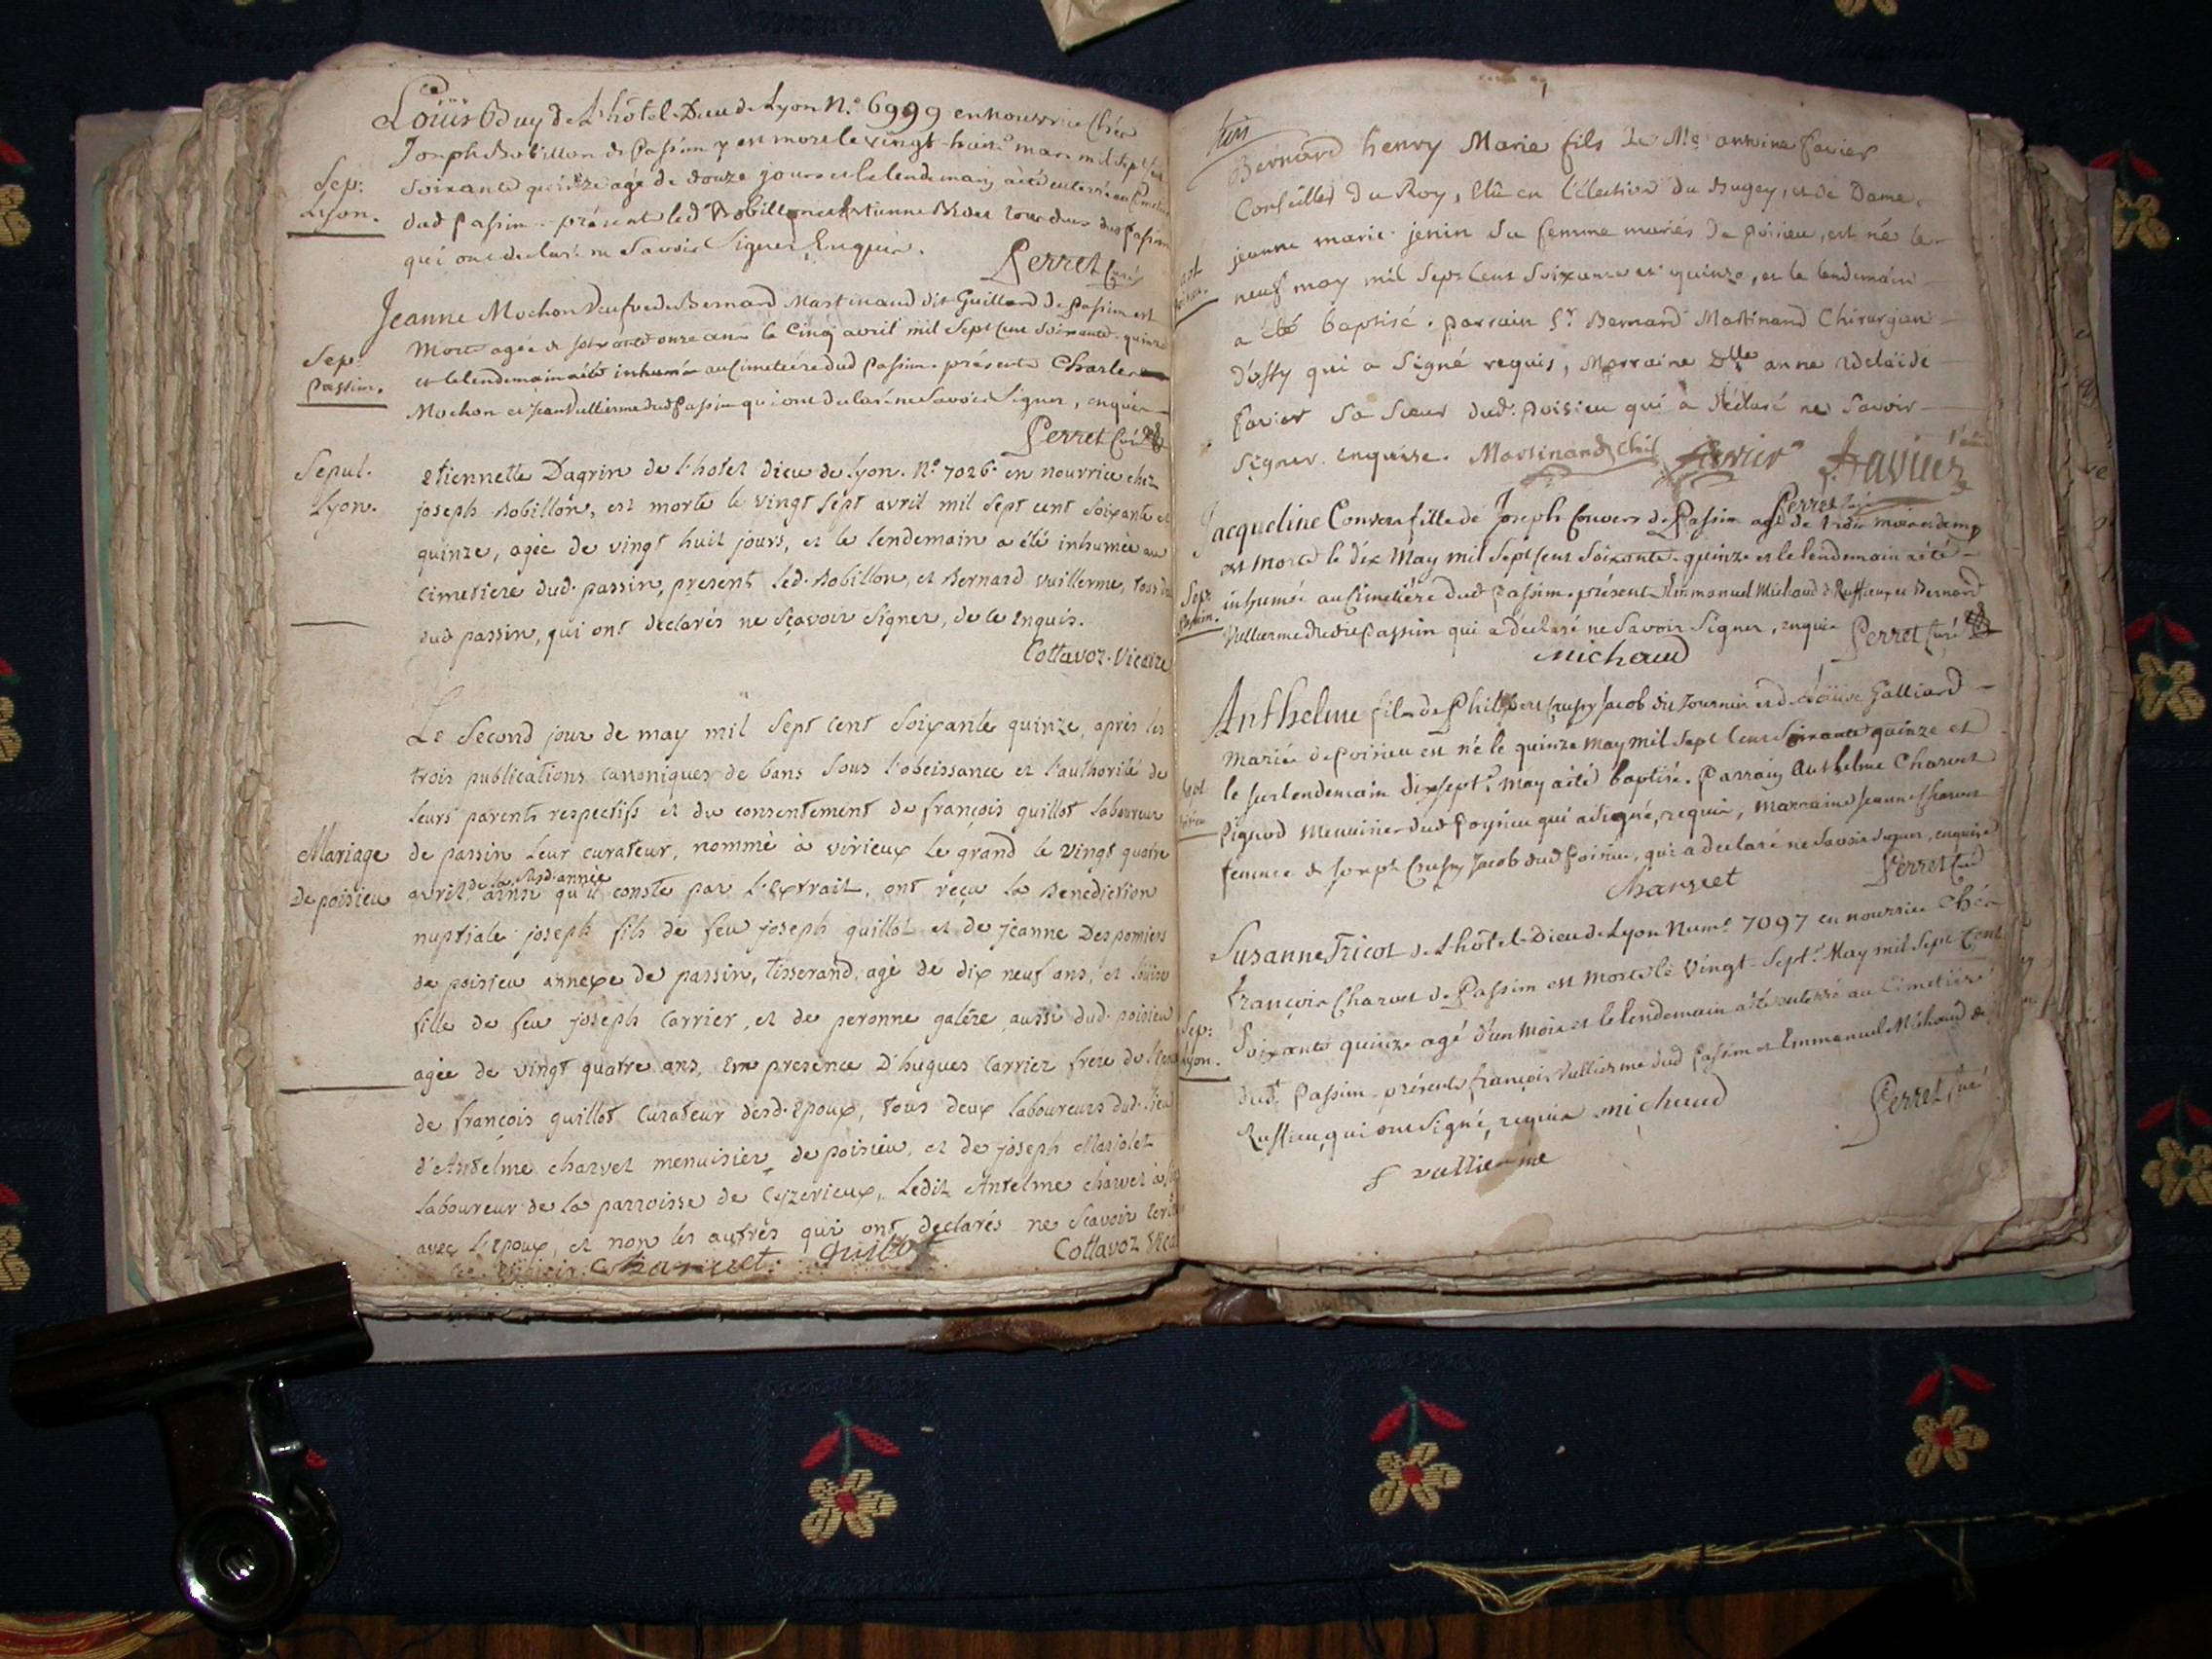 Louis Buy de L'hôtel-Dieu de Lyon N.° 6999 en nourrice chés
Joseph Bobillon de Passin y est mort le vingt-huit mars mil sept cent
Sep:
Lyon.
soixante quinze agé de douze jours et le lendemain a été enterré au
dud Passin - présent led Bobillon et Etienne tous deux dud Passin
qui ont déclaré ne savoir signer, Enquis.
Perret Curé
Jeanne Mochon veufve de Bernard Martinand dit Guilland de Passin est
Sep:
Passin.
morte agée de soixante onze ans le cinq avril mil sept cent soixante-quinze
et le lendemain a été inhumée au Cimetière dud Passin. présents Charles
Mochon et Jean Vullierme dud Passin qui ont déclaré ne savoir signer, enquis
Perret Curé
Sepul.
Lyon.
Etiennette Dagrin de l'hotel dieu de lyon. N.° 7026 en nourrice chez
joseph Bobillon, est morte le vingt sept avril mil sept cent soixante et
quinze, agée de vingt huit jours, et le lendemain a été inhumée au
cimetiere dud. passin, present led. Bobillon, et Bernard vuillerme, tous
dud passin, qui ont declarés ne sçavoir signer, de ce enquis.
Cottavoz. Vicaire
Le second jour de may mil sept cent soixante quinze, après les
trois publications canoniques de bans sous l'obeissance et l'authorité de
leurs parents respectifs et du consentement de françois guillot laboureur
Mariage
De poisieu
de passin leur curateur, nommé à virieux le grand le vingt quatre
avril, de la susd. année ainsi qu'il conste par l'Extrait, ont reçu la Benediction
nuptiale joseph fils de feu joseph guillot et de jeanne Despomiers
de poisieu annexe de passin, tisserand, agé de dix neuf ans, et
fille de feu joseph Carrier, et de peronne galére aussi dud. poisieu
agée de vingt quatre ans, En presence D'hugues Carrier frere de
de françois guillot Curateur desd. Epoux, tous deux laboureurs dud. lieu
d'Antelme charvet menuisier de poisieu, et de joseph Marjolet
laboureur de la parroisse de Ceyzerieux, ledit Antelme charvet a
avec l'Epoux, et non les autres qui ont declarés ne sçavoir
Charvet Guillot Cottavoz
Bernard henry Marie fils de Me antoine favier
Conseiller du Roy, Elû en l'élection du Bugey, et de Dame
jeanne marie jenin sa femme mariés de poisieu, est né le
neuf may mil sept cent soixante et quinze, et le lendemain
a été baptisé. parrain Sr Bernard Martinand Chirurgien
d'ossy qui a signé requis, Marraine Dlle anne adelaïde
favier sa sœur dud. poisieu qui a déclaré ne savoir
signer. enquise. Martinand favier favier
Perret
Jacqueline Convers fille de Joseph Convers de Passin agé de trois mois et demy
est morte le dix May mil sept cent soixante-quinze et le lendemain a été
Sep:
Passin.
inhumée au Cimetière dud Passin. présent Emmanuel Michaud de Ruffieu, et Bernard
Vullierme dud Passin qui a déclaré ne savoir signer, enquis Perret Curé
Michaud
Anthelme fils de Philibert Jacob dit Tournier et de Louise Galliard
mariés de poisieu est né le quinze May mil sept cent soixante quinze et
le surlendemain dix sept May a été baptisé. Parrain Anthelme Charvet
Pignod Menuisier dud Poysieu qui a signé, requis, Marraine Jeanne Charvet
femme de Joseph Jacob dud Poisieu, qui a déclaré ne savoir signer, enquise
Charvet Perret Curé
Susanne Tricot de L'hôtel-Dieu de Lyon Num.° 7097 en nourrice chés
François Charvet de Passin est morte le vingt-sept May mil sept cent
Sep:
Lyon.
soixante quinze agé d'un mois et le lendemain a été enterré au Cimetière
dud Passin. présents françois Vullierme dud Passin et Emmanuel Michaud de
Ruffieu, qui ont signé, requis Michaud Perret Curé
f vullierme